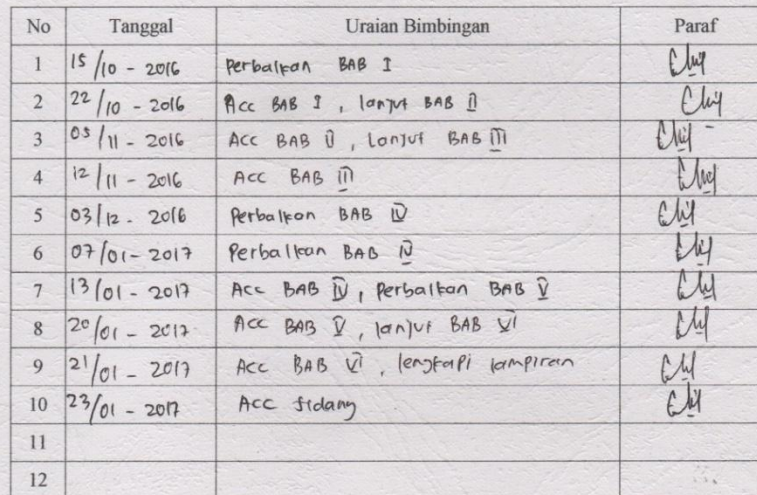 No Tanggal Uraian Bimbingan Paraf
1 15/10 - 2016 Perbaikan BAB I
2 22/10 - 2016 Acc BAB I, lanjut BAB II
3 05/11 - 2016 Acc BAB II, Lanjut BAB III
4 12/11 - 2016 Acc BAB III
5 03/12 - 2016 Perbaikan BAB IV
6 07/01 - 2017 Perbaikan BAB IV
7 13/01 - 2017 Acc BAB IV, Perbaikan BAB V
8 20/01 - 2017 Acc BAB V, lanjut BAB VI
9 21/01 - 2017 Acc BAB VI, lengkapi lampiran
10 23/01 - 2017 Acc sidang
11
12